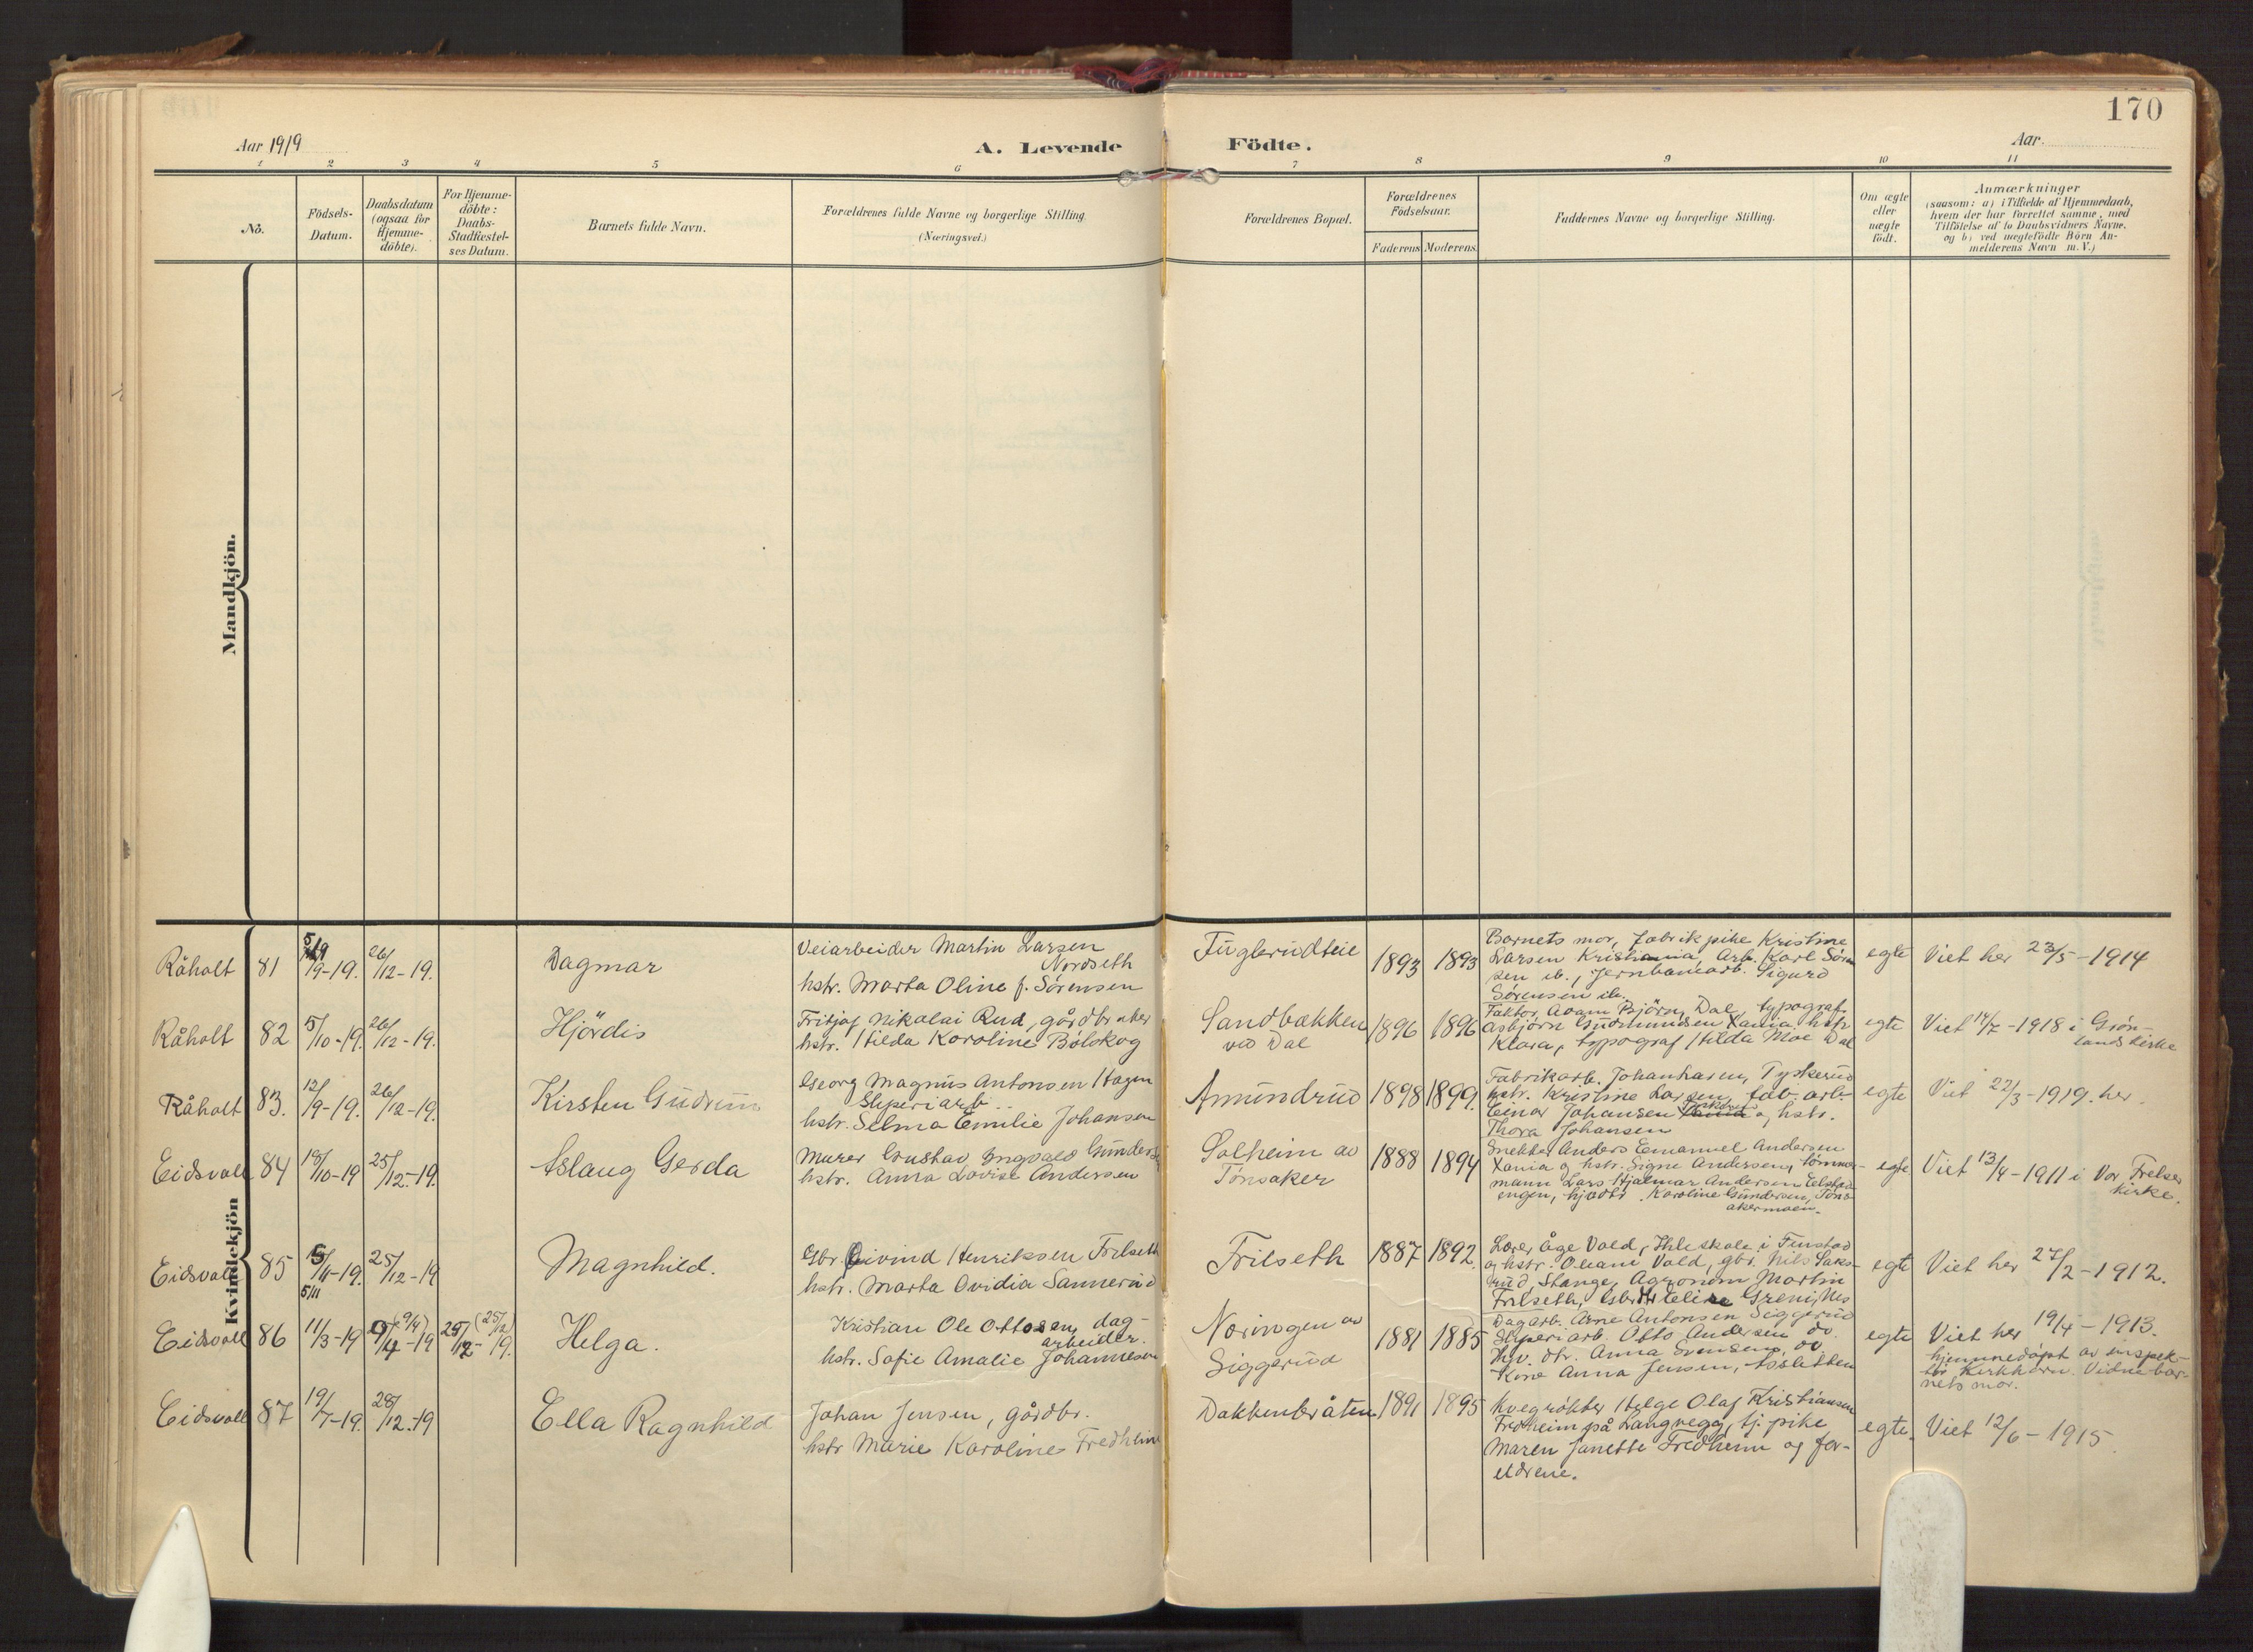 170
Aar 1919
A. Levende Födte.
Aar
1 2 3 4 5 6 7 8 9 10 11
No.
Födsels-
Datum.
Daabsdatum
(ogsaa for
Hjemme-
döbte).
For Hjemme-
döbte:
Daabs-
Stadfæstel-
ses Datum.
Barnets fulde Navn.
Forældrenes fulde Navne og borgerlige Stilling.
(Næringsvei.)
Forældrenes Bopæl.
Forældrenes
Födselsaar.
Faderens Moderens.
Faddernes Navne og borgerlige Stilling.
Om ægte
eller
uægte
födt.
Anmærkninger
(saasom: a) i Tilfælde af Hjemmedaab,
hvem der har forrettet samme, med
Tilföielse af to Daabsvidners Navne,
og b) ved uægtefödte Börn An-
melderens Navn m. V.)
Mandkjön.
Kvindekjön
Råholt 81 /9-19. 26/12-19.
Dagmar
Veiarbeider Martin Larsen
Nordseth
hstr. Marta Oline f. Sørensen
Fuglerudteie
1893 1893
Barnets mor, fabrikpike Kristine
Larsen Kristiania, Arb. Karl Søren
sen ib., Jernbanearb. Sigurd
Sørensen ib.
egte
Viet her 23/5-1914
Råholt 82 5/10-19. 26/12-19.
Hjördis
Fritjof Nikolai Rud, gårdbruker
hstr. Hilda Karoline Bölskog
Sandbakken
ved Dal
1896 1896
Faktor Adam Björn, Dal, typograf
Asbjørn Gudmundsen Xania hstr
Klara, typograf Hilda Moe Dal
egte
Viet 14/7-1918 i Grön-
lands kirke
Råholt 83. 12/9-19. 26/12-19.
Kirsten Gudrun
Georg Magnus Antonsen Hagen
Sliperiarb.
hstr. Selma Emilie Johansen
Amundrud
1898 1899.
Fabrikarb. Johan Larsen, Tyskerud
hstr. Kristine Larsen, fab. arb.
Einar Johansen og hstr.
Thora Johansen
egte
Viet 22/3-1919. her.
Eidsvoll 84 18/10-19 25/12-19.
Aslaug Gerda
Murer Gustav Ingvald Gunders
hstr. Anna Lovise Andersen
Solheim av
Tönsaker
1888 1894
Snekker Anders Emanuel Andersen
Xania og hstr. Signe Andersen, tömmer-
mann Lars Hjalmar Andersen Eelstad
engen, hjedtr. Karoline Gundersen, Töns
akermoen.
egte
Viet 13/4-1911 i Vor Frelser
kirke.
Eidsvoll 85 /11-19. 25/12-19
5/11
Magnhild.
Gbr. Eivind Henriksen Frilseth
hstr. Marta Ovidia Sannerud
Frilseth
1887 1892.
Lærer Åge Vold, Ihleskole i Finstad
og hstr. Oleane Vold, gbr. Nils Saks-
rud, Stange, Agronom Martin
Frilseth, Greni, Nes
egte
Viet her 27/2-1912.
Eidsvoll 86 11/3-19 9/4-19 (9/4) 25/12-19. (25/12)
Helga.
Kristian Ole Ottosen, dag-
arbeider.
hstr. Sofie Amalie Johannesen
Noringen av
Siggerud
1881 1885
Dagarb. Arne Antonsen Siggerud
Sliperiarb. Otto Andersen do.
Hjv. dtr. Anna Svensen, do.
Kone Anna Jensen, Aosletten
egte
Viet her 19/4-1913.
hjemmedöpt av inspek-
tör Kirkhorn. Vidne bar-
nets mor.
Eidsvoll 87 19/7-19. 28/12-19
Ella Ragnhild
Johan Jensen, gårdbr.
hstr Marie Karoline Fredheim
Dakkenbråten
1891 1895
Kvegrökter Helge Olaf Kristiansen
Fredheim på Langvegg, tj. pike
Maren Janette Fredheim og for-
eldrene.
egte.
Viet 12/6-1915.